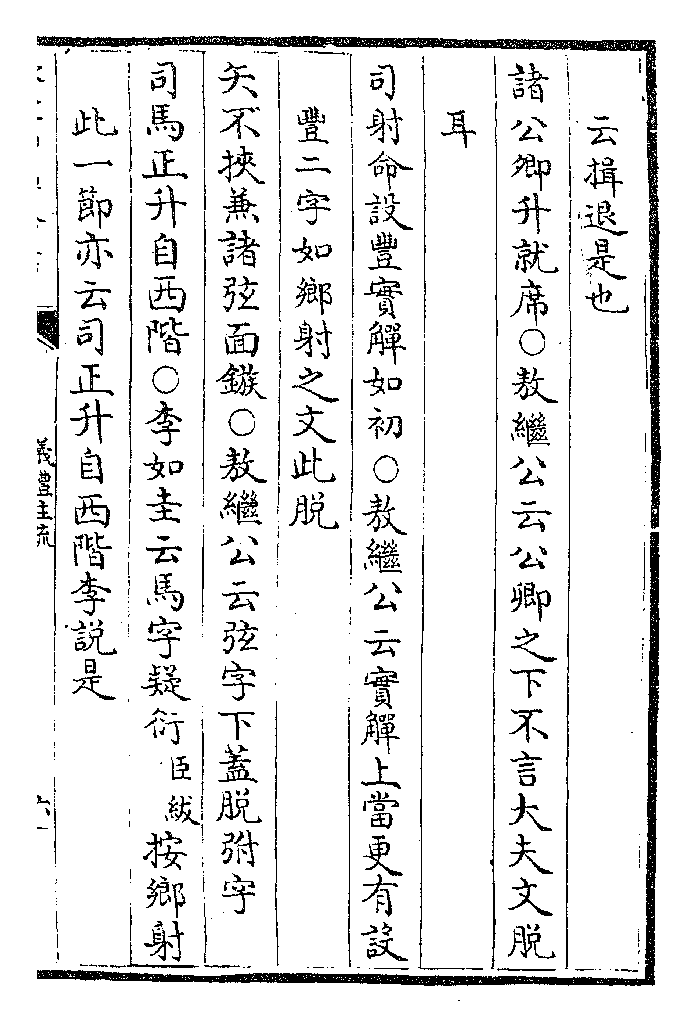 云揖退是也
諸公卿升就席○敖繼公云公卿之下不言大夫文脱
耳
司射命設豐實觶如初○敖繼公云實觶上當更有設
豐二字如鄉射之文此脱
矢不挾兼諸弦面鏃○敖繼公云弦字下蓋脱弣字
司馬正升自西階○李如圭云馬字疑衍臣紱按鄉射
此一節亦云司正升自西階李說是